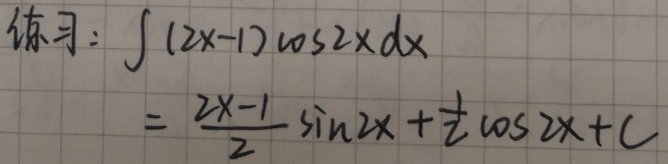 练习: ∫(2x-1)cos2xdx
= \frac{2x-1}{2} sin2x + \frac{1}{2} cos2x + C